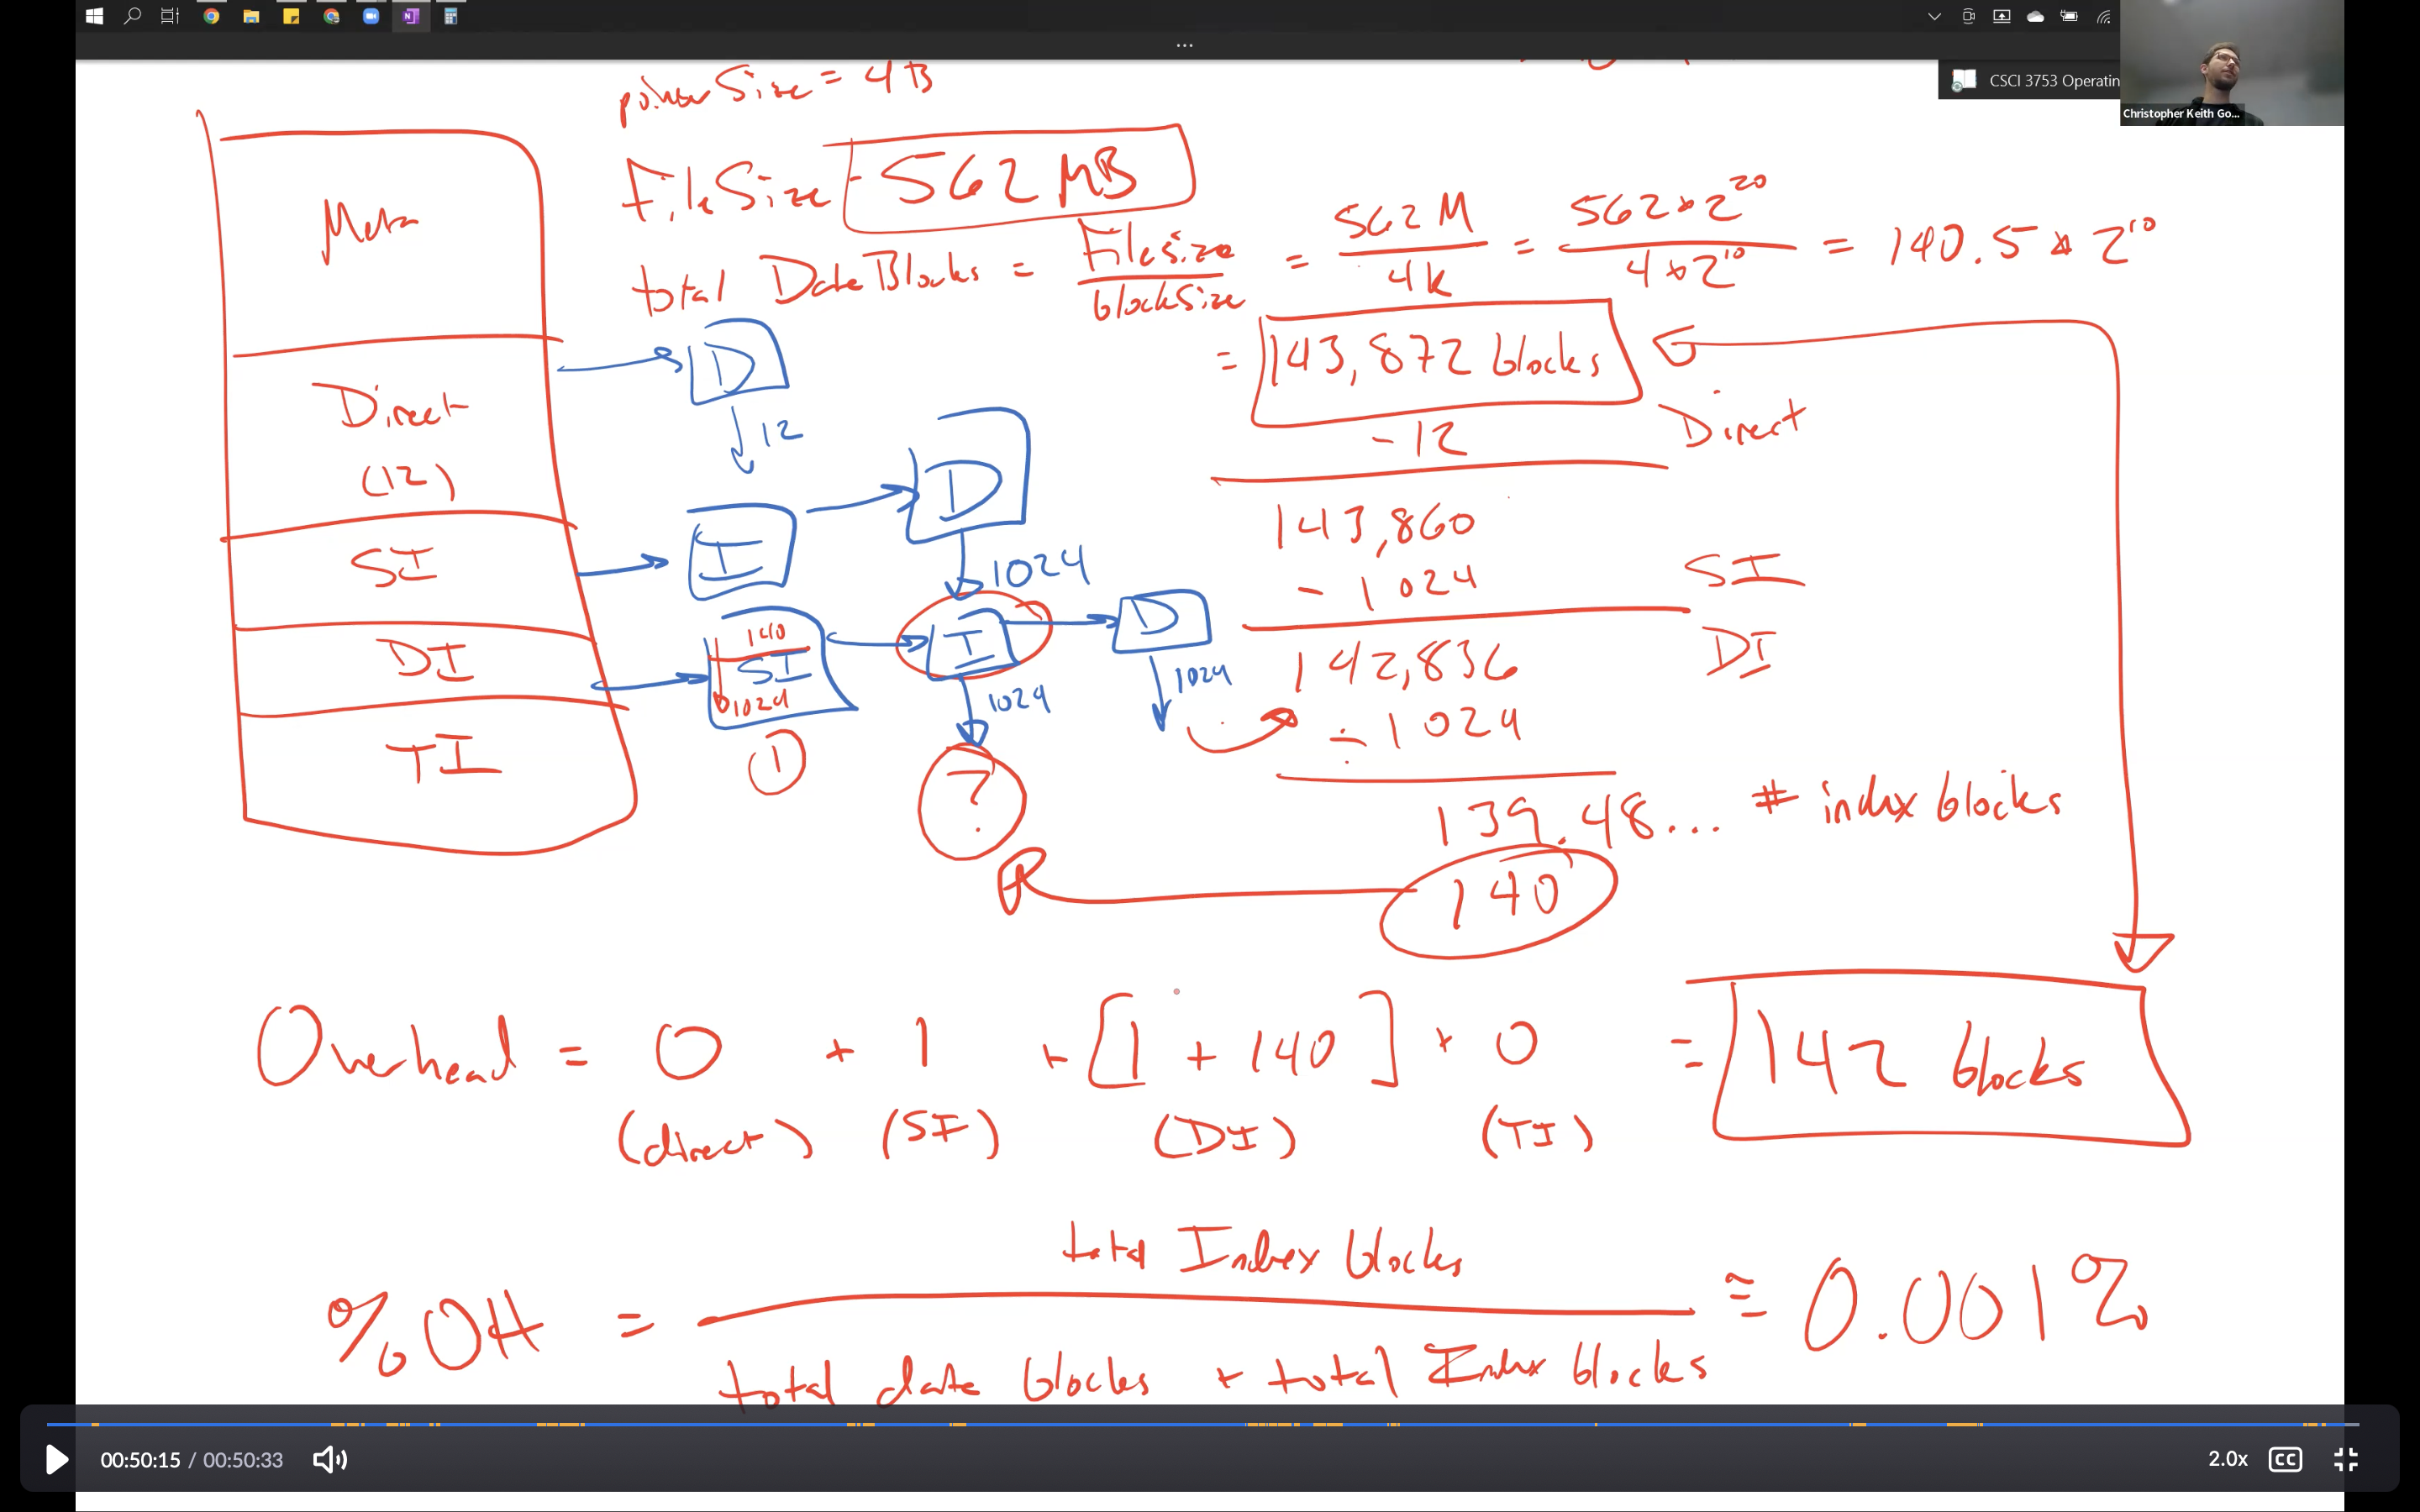 CSCI 3753 Operatin
Christopher Keith Go...
pointer Size = 4B
FileSize = 562 MB
total DataBlocks = FileSize / blockSize = 562 M / 4k = 562 * 2^20 / 4 * 2^10 = 140.5 * 2^10
= 143,872 blocks
- 12 Direct
143,860
- 1024 SI
142,836 DI
÷ 1024
139.48... # index blocks
140
Meta
Direct
(12)
SI
DI
TI
D
12
I
D
1024
140
SI
1024
1
I
1024
?
D
1024
Overhead = 0 + 1 + [1 + 140] + 0 = 142 blocks
(direct) (SI) (DI) (TI)
% OH = total Index blocks / total data blocks + total Index blocks ≅ 0.001%
00:50:15 / 00:50:33
2.0x CC